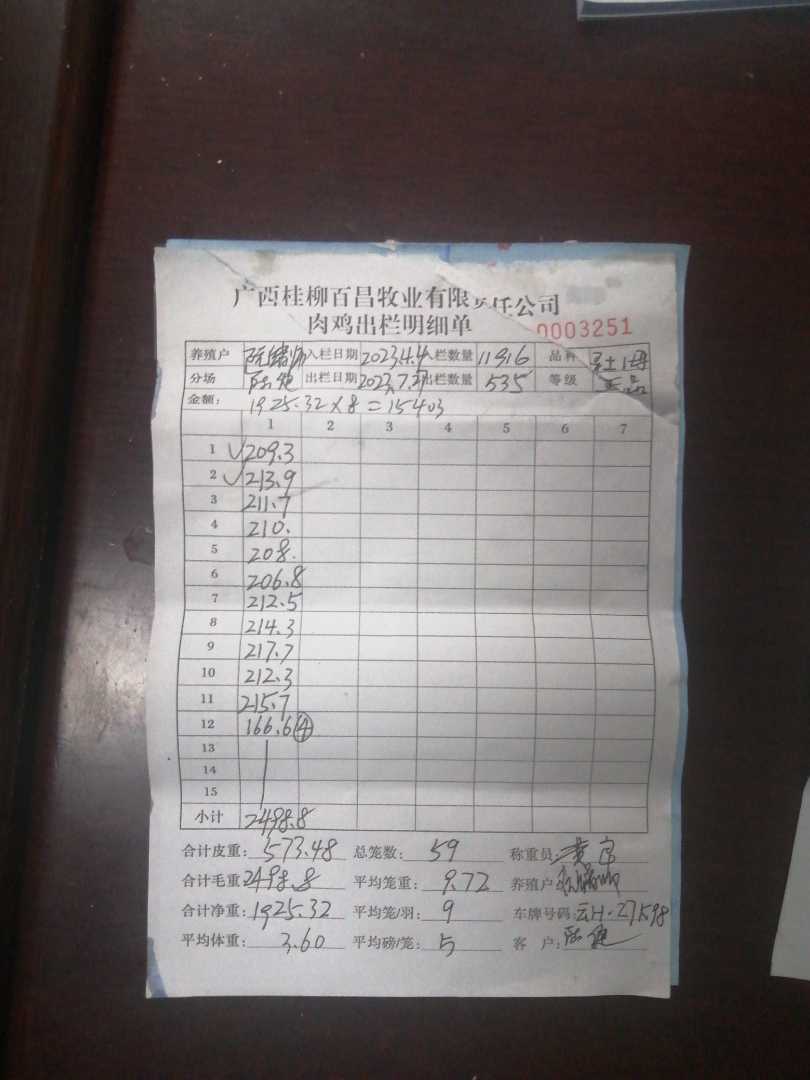 广西桂柳百昌牧业有限责任公司
肉鸡出栏明细单 0003251
养殖户 入栏日期 2023.4.4 入栏数量 11916 品种
分场 陆艳 出栏日期 2023.7.27 出栏数量 535 等级
金额: 1925.32×8=15403
1 2 3 4 5 6 7
1 √209.3
2 √213.9
3 211.7
4 210.
5 208.
6 206.8
7 212.5
8 214.3
9 217.7
10 212.3
11 215.7
12 166.6④
13
14
15
小计 2498.8
合计皮重: 573.48 总笼数: 59 称重员:
合计毛重 2498.8 平均笼重: 9.72 养殖户
合计净重: 1925.32 平均笼/羽: 9 车牌号码: 云H·27598
平均体重: 3.60 平均磅/笼: 5 客 户: